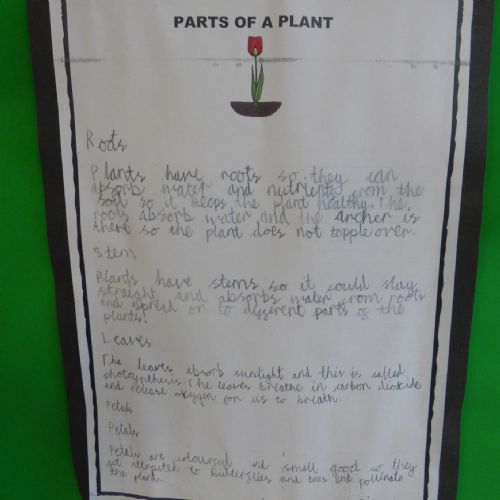 PARTS OF A PLANT
Roots
Plants have roots so they can
absorb water and nutrients from the
soil so it keeps the plant healthy. The
roots absorb water and the Ancher is
there so the plant does not topple over.
Stem
Plants have stems so it could stay
straight and absorbs water from roots
and spread on to different parts of the
plants.
Leaves
The leaves absorb sunlight and this is called
photosynthesis. The leaves breathe in carbon dioxide
and release oxygen for us to breath.
Petals
Petals
Petals are colourful and smell good so they
get attracted to butterflies and bees and pollinate
the plant.